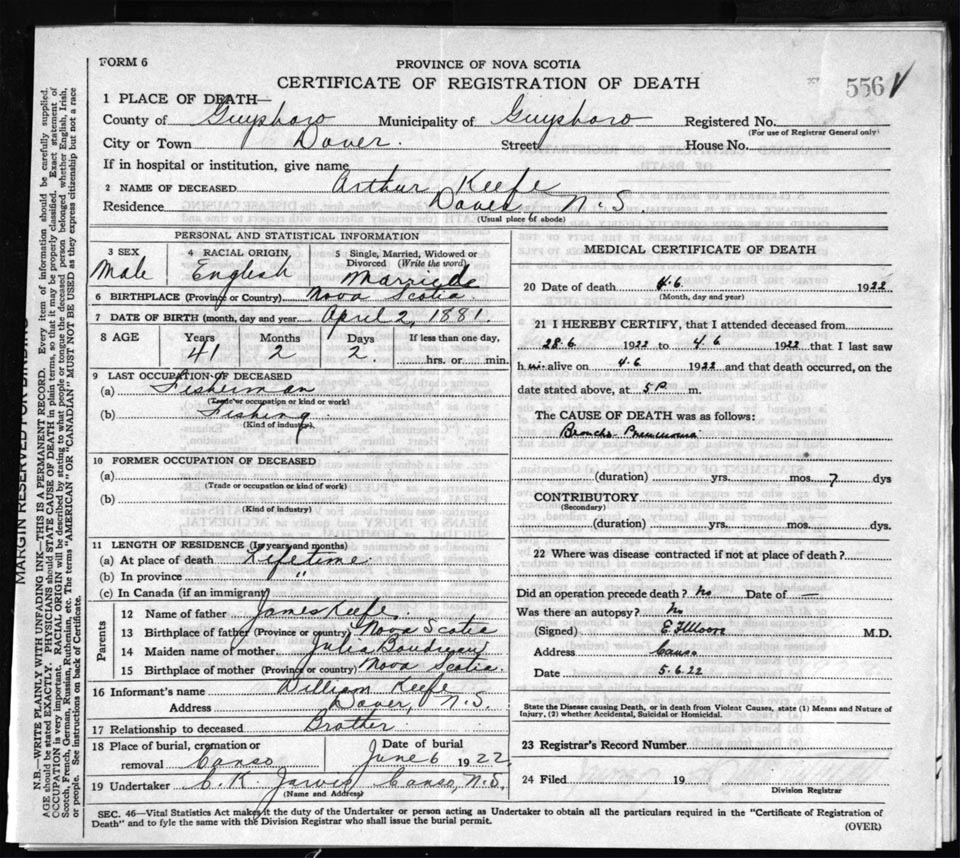 FORM 6
PROVINCE OF NOVA SCOTIA
CERTIFICATE OF REGISTRATION OF DEATH
556
1 PLACE OF DEATH—
County of Guysboro Municipality of Guysboro Registered No.
(For use of Registrar General only)
City or Town Dover. Street House No.
If in hospital or institution, give name
2 NAME OF DECEASED Arthur Keefe
Residence Dover, N.S.
(Usual place of abode)
PERSONAL AND STATISTICAL INFORMATION
3 SEX Male
4 RACIAL ORIGIN English
5 Single, Married, Widowed or Divorced (Write the word) Married
6 BIRTHPLACE (Province or Country) Nova Scotia
7 DATE OF BIRTH (month, day and year April 2, 1881.
8 AGE Years Months Days If less than one day,
41 2 2 hrs. or min.
9 LAST OCCUPATION OF DECEASED
(a) Fisherman
(Trade or occupation or kind or work)
(b) Fishing
(Kind of industry)
10 FORMER OCCUPATION OF DECEASED
(a)
(Trade or occupation or kind of work)
(b)
(Kind of industry)
11 LENGTH OF RESIDENCE (In years and months)
(a) At place of death Lifetime
(b) In province "
(c) In Canada (if an immigrant)
Parents
12 Name of father James Keefe
13 Birthplace of father (Province or country) Nova Scotia
14 Maiden name of mother Julia
15 Birthplace of mother (Province or country) Nova Scotia
16 Informant's name William Keefe
Address Dover, N.S.
17 Relationship to deceased Brotter
18 Place of burial, cremation or removal Canso
Date of burial June 6 1922
19 Undertaker C. K. Jarvis Canso, N.S.
(Name and Address)
MEDICAL CERTIFICATE OF DEATH
20 Date of death 4.6. 1922
(Month, day and year)
21 I HEREBY CERTIFY, that I attended deceased from
28.6 1922 to 4.6 1922 that I last saw
him alive on 4.6 1922 and that death occurred, on the
date stated above, at 5 P. m.
The CAUSE OF DEATH was as follows:
Broncho Pneumonia
(duration) yrs. mos. 7 dys
CONTRIBUTORY
(Secondary)
(duration) yrs. mos. dys.
22 Where was disease contracted if not at place of death?
Did an operation precede death? No Date of —
Was there an autopsy? No
(Signed) E F Moore M.D.
Address Canso
Date 5.6.22
State the Disease causing Death, or in death from Violent Causes, state (1) Means and Nature of
Injury, (2) whether Accidental, Suicidal or Homicidal.
23 Registrar's Record Number
24 Filed 19
Division Registrar
SEC. 46—Vital Statistics Act makes it the duty of the Undertaker or person acting as Undertaker to obtain all the particulars required in the "Certificate of Registration of
Death" and to fyle the same with the Division Registrar who shall issue the burial permit.
(OVER)
MARGIN RESERVED FOR BINDING
N.B.—WRITE PLAINLY WITH UNFADING INK—THIS IS A PERMANENT RECORD. Every item of information should be carefully supplied.
AGE should be stated EXACTLY. PHYSICIANS should STATE CAUSE OF DEATH in plain terms, so that it may be properly classified. Exact statement of
OCCUPATION is very important. RACIAL ORIGIN will be described by stating to what people or tongue the deceased person belonged whether English, Irish,
Scotch, French, German, Russian, Ruthenian, etc. The terms "AMERICAN" or "CANADIAN" MUST NOT BE USED as they express citizenship but not a race
or people. See instructions on back of Certificate.